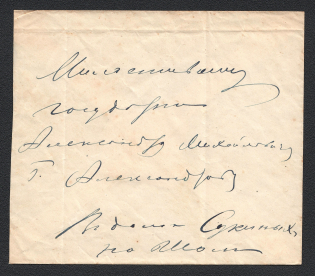 Милостивому
государю
Александру Михайловичу
Г. Александрову
В доме
на